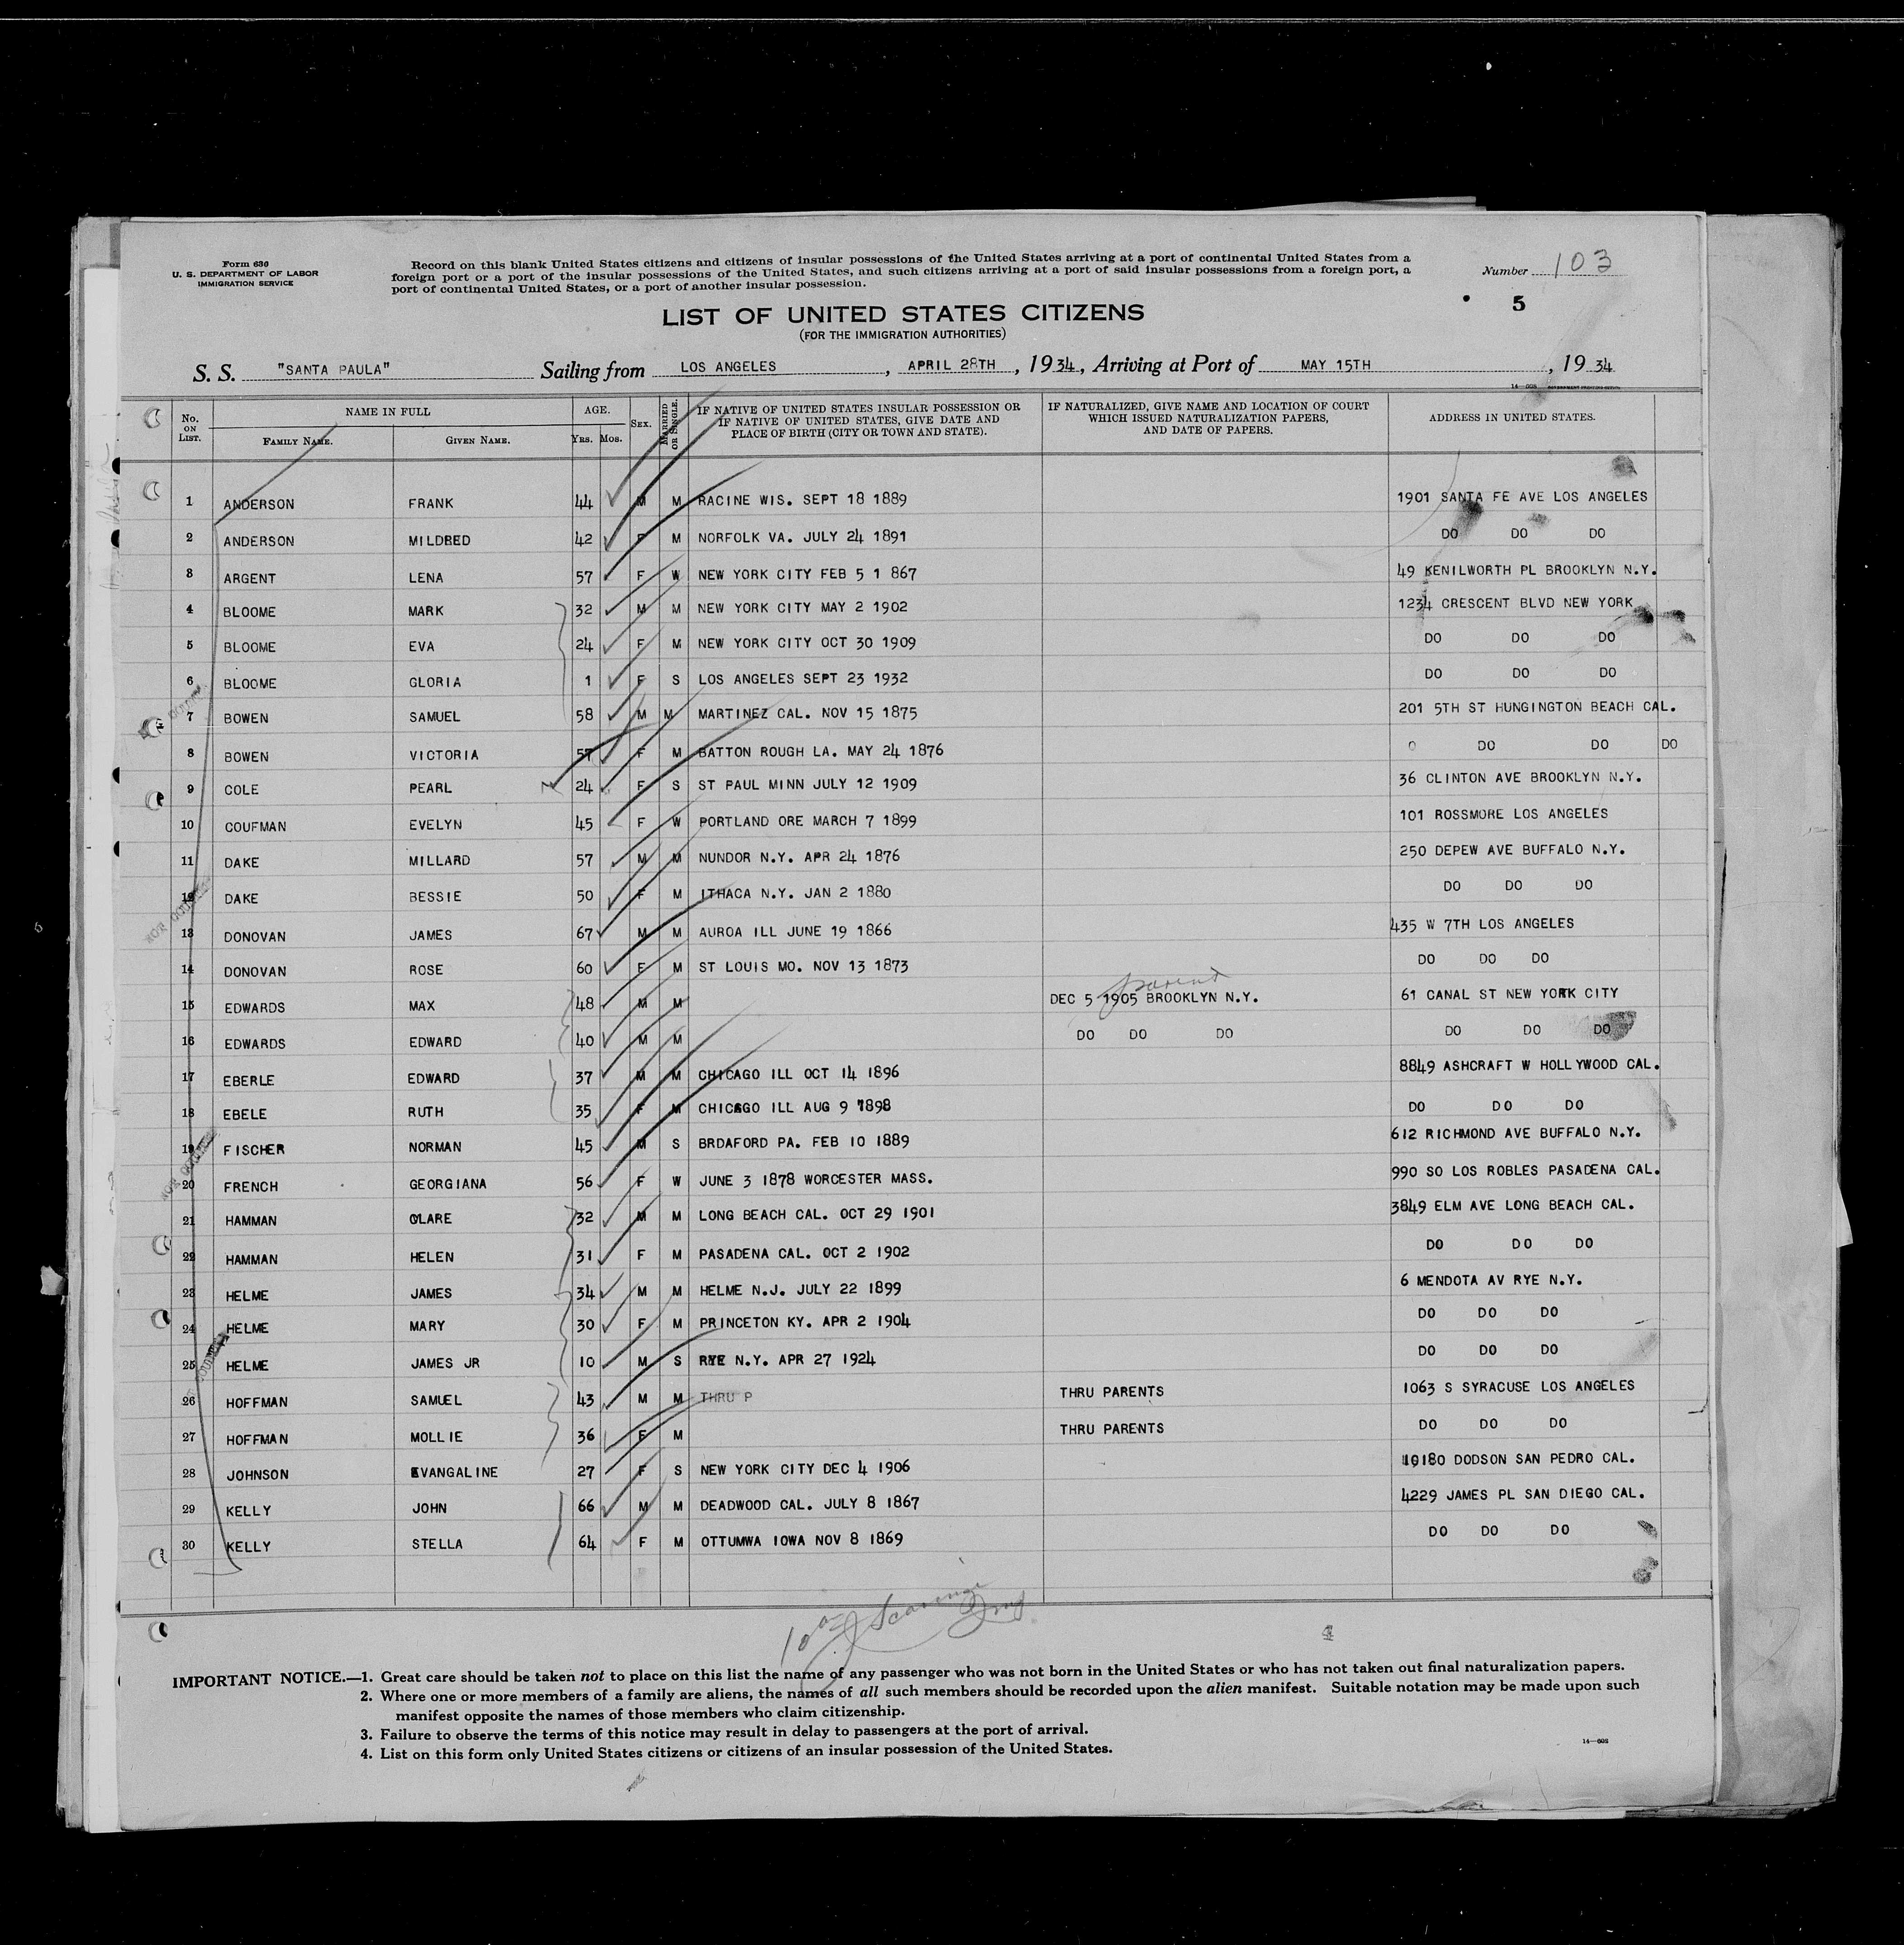 Form 636
U. S. DEPARTMENT OF LABOR
IMMIGRATION SERVICE
Record on this blank United States citizens and citizens of insular possessions of the United States arriving at a port of continental United States from a
foreign port or a port of the insular possessions of the United States, and such citizens arriving at a port of said insular possessions from a foreign port, a
port of continental United States, or a port of another insular possession.
Number 103
5
LIST OF UNITED STATES CITIZENS
(FOR THE IMMIGRATION AUTHORITIES)
S. S. "SANTA PAULA" Sailing from LOS ANGELES, APRIL 28TH, 1934, Arriving at Port of MAY 15TH, 1934
No. ON LIST. NAME IN FULL FAMILY NAME. GIVEN NAME. AGE. YRS. MOS. SEX. MARRIED OR SINGLE. IF NATIVE OF UNITED STATES INSULAR POSSESSION OR IF NATIVE OF UNITED STATES, GIVE DATE AND PLACE OF BIRTH (CITY OR TOWN AND STATE). IF NATURALIZED, GIVE NAME AND LOCATION OF COURT WHICH ISSUED NATURALIZATION PAPERS, AND DATE OF PAPERS. ADDRESS IN UNITED STATES.
1 ANDERSON FRANK 44 M M RACINE WIS. SEPT 18 1889 1901 SANTA FE AVE LOS ANGELES
2 ANDERSON MILDRED 42 F M NORFOLK VA. JULY 24 1891 DO DO DO
3 ARGENT LENA 57 F W NEW YORK CITY FEB 5 1 867 49 KENILWORTH PL BROOKLYN N.Y.
4 BLOOME MARK 32 M M NEW YORK CITY MAY 2 1902 1234 CRESCENT BLVD NEW YORK
5 BLOOME EVA 24 F M NEW YORK CITY OCT 30 1909 DO DO DO
6 BLOOME GLORIA 1 F S LOS ANGELES SEPT 23 1932 DO DO DO
7 BOWEN SAMUEL 58 M M MARTINEZ CAL. NOV 15 1875 201 5TH ST HUNGINGTON BEACH CAL.
8 BOWEN VICTORIA 57 F M BATTON ROUGH LA. MAY 24 1876 O DO DO DO
9 COLE PEARL 24 F S ST PAUL MINN JULY 12 1909 36 CLINTON AVE BROOKLYN N.Y.
10 COUFMAN EVELYN 45 F W PORTLAND ORE MARCH 7 1899 101 ROSSMORE LOS ANGELES
11 DAKE MILLARD 57 M M NUNDOR N.Y. APR 24 1876 250 DEPEW AVE BUFFALO N.Y.
12 DAKE BESSIE 50 F M ITHACA N.Y. JAN 2 1880 DO DO DO
13 DONOVAN JAMES 67 M M AUROA ILL JUNE 19 1866 435 W 7TH LOS ANGELES
14 DONOVAN ROSE 60 F M ST LOUIS MO. NOV 13 1873 DO DO DO
parent
15 EDWARDS MAX 48 M M DEC 5 1905 BROOKLYN N.Y. 61 CANAL ST NEW YORK CITY
16 EDWARDS EDWARD 40 M M DO DO DO DO DO DO
17 EBERLE EDWARD 37 M M CHICAGO ILL OCT 14 1896 8849 ASHCRAFT W HOLLYWOOD CAL.
18 EBELE RUTH 35 F M CHICAGO ILL AUG 9 1898 DO DO DO
19 FISCHER NORMAN 45 M S BRDAFORD PA. FEB 10 1889 612 RICHMOND AVE BUFFALO N.Y.
20 FRENCH GEORGIANA 56 F W JUNE 3 1878 WORCESTER MASS. 990 SO LOS ROBLES PASADENA CAL.
21 HAMMAN CLARE 32 M M LONG BEACH CAL. OCT 29 1901 3849 ELM AVE LONG BEACH CAL.
22 HAMMAN HELEN 31 F M PASADENA CAL. OCT 2 1902 DO DO DO
23 HELME JAMES 34 M M HELME N.J. JULY 22 1899 6 MENDOTA AV RYE N.Y.
24 HELME MARY 30 F M PRINCETON KY. APR 2 1904 DO DO DO
25 HELME JAMES JR 10 M S RYE N.Y. APR 27 1924 DO DO DO
26 HOFFMAN SAMUEL 43 M M THRU P THRU PARENTS 1063 S SYRACUSE LOS ANGELES
27 HOFFMAN MOLLIE 36 F M THRU PARENTS DO DO DO
28 JOHNSON EVANGALINE 27 F S NEW YORK CITY DEC 4 1906 10180 DODSON SAN PEDRO CAL.
29 KELLY JOHN 66 M M DEADWOOD CAL. JULY 8 1867 4229 JAMES PL SAN DIEGO CAL.
30 KELLY STELLA 64 F M OTTUMWA IOWA NOV 8 1869 DO DO DO
IMPORTANT NOTICE.—1. Great care should be taken not to place on this list the name of any passenger who was not born in the United States or who has not taken out final naturalization papers.
2. Where one or more members of a family are aliens, the names of all such members should be recorded upon the alien manifest. Suitable notation may be made upon such
manifest opposite the names of those members who claim citizenship.
3. Failure to observe the terms of this notice may result in delay to passengers at the port of arrival.
4. List on this form only United States citizens or citizens of an insular possession of the United States.
14—608